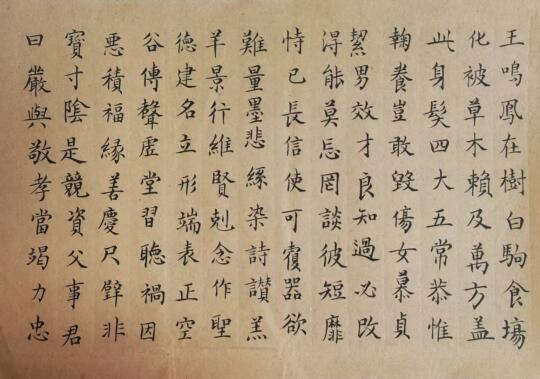 王鳴鳳在樹白駒食場
化被草木賴及萬方蓋
此身髮四大五常恭惟
鞠養豈敢毀傷女慕貞
絜男效才良知過必改
得能莫忘罔談彼短靡
恃己長信使可覆器欲
難量墨悲絲染詩讚羔
羊景行維賢剋念作聖
德建名立形端表正空
谷傳聲虛堂習聽禍因
惡積福緣善慶尺璧非
寶寸陰是競資父事君
曰嚴與敬孝當竭力忠